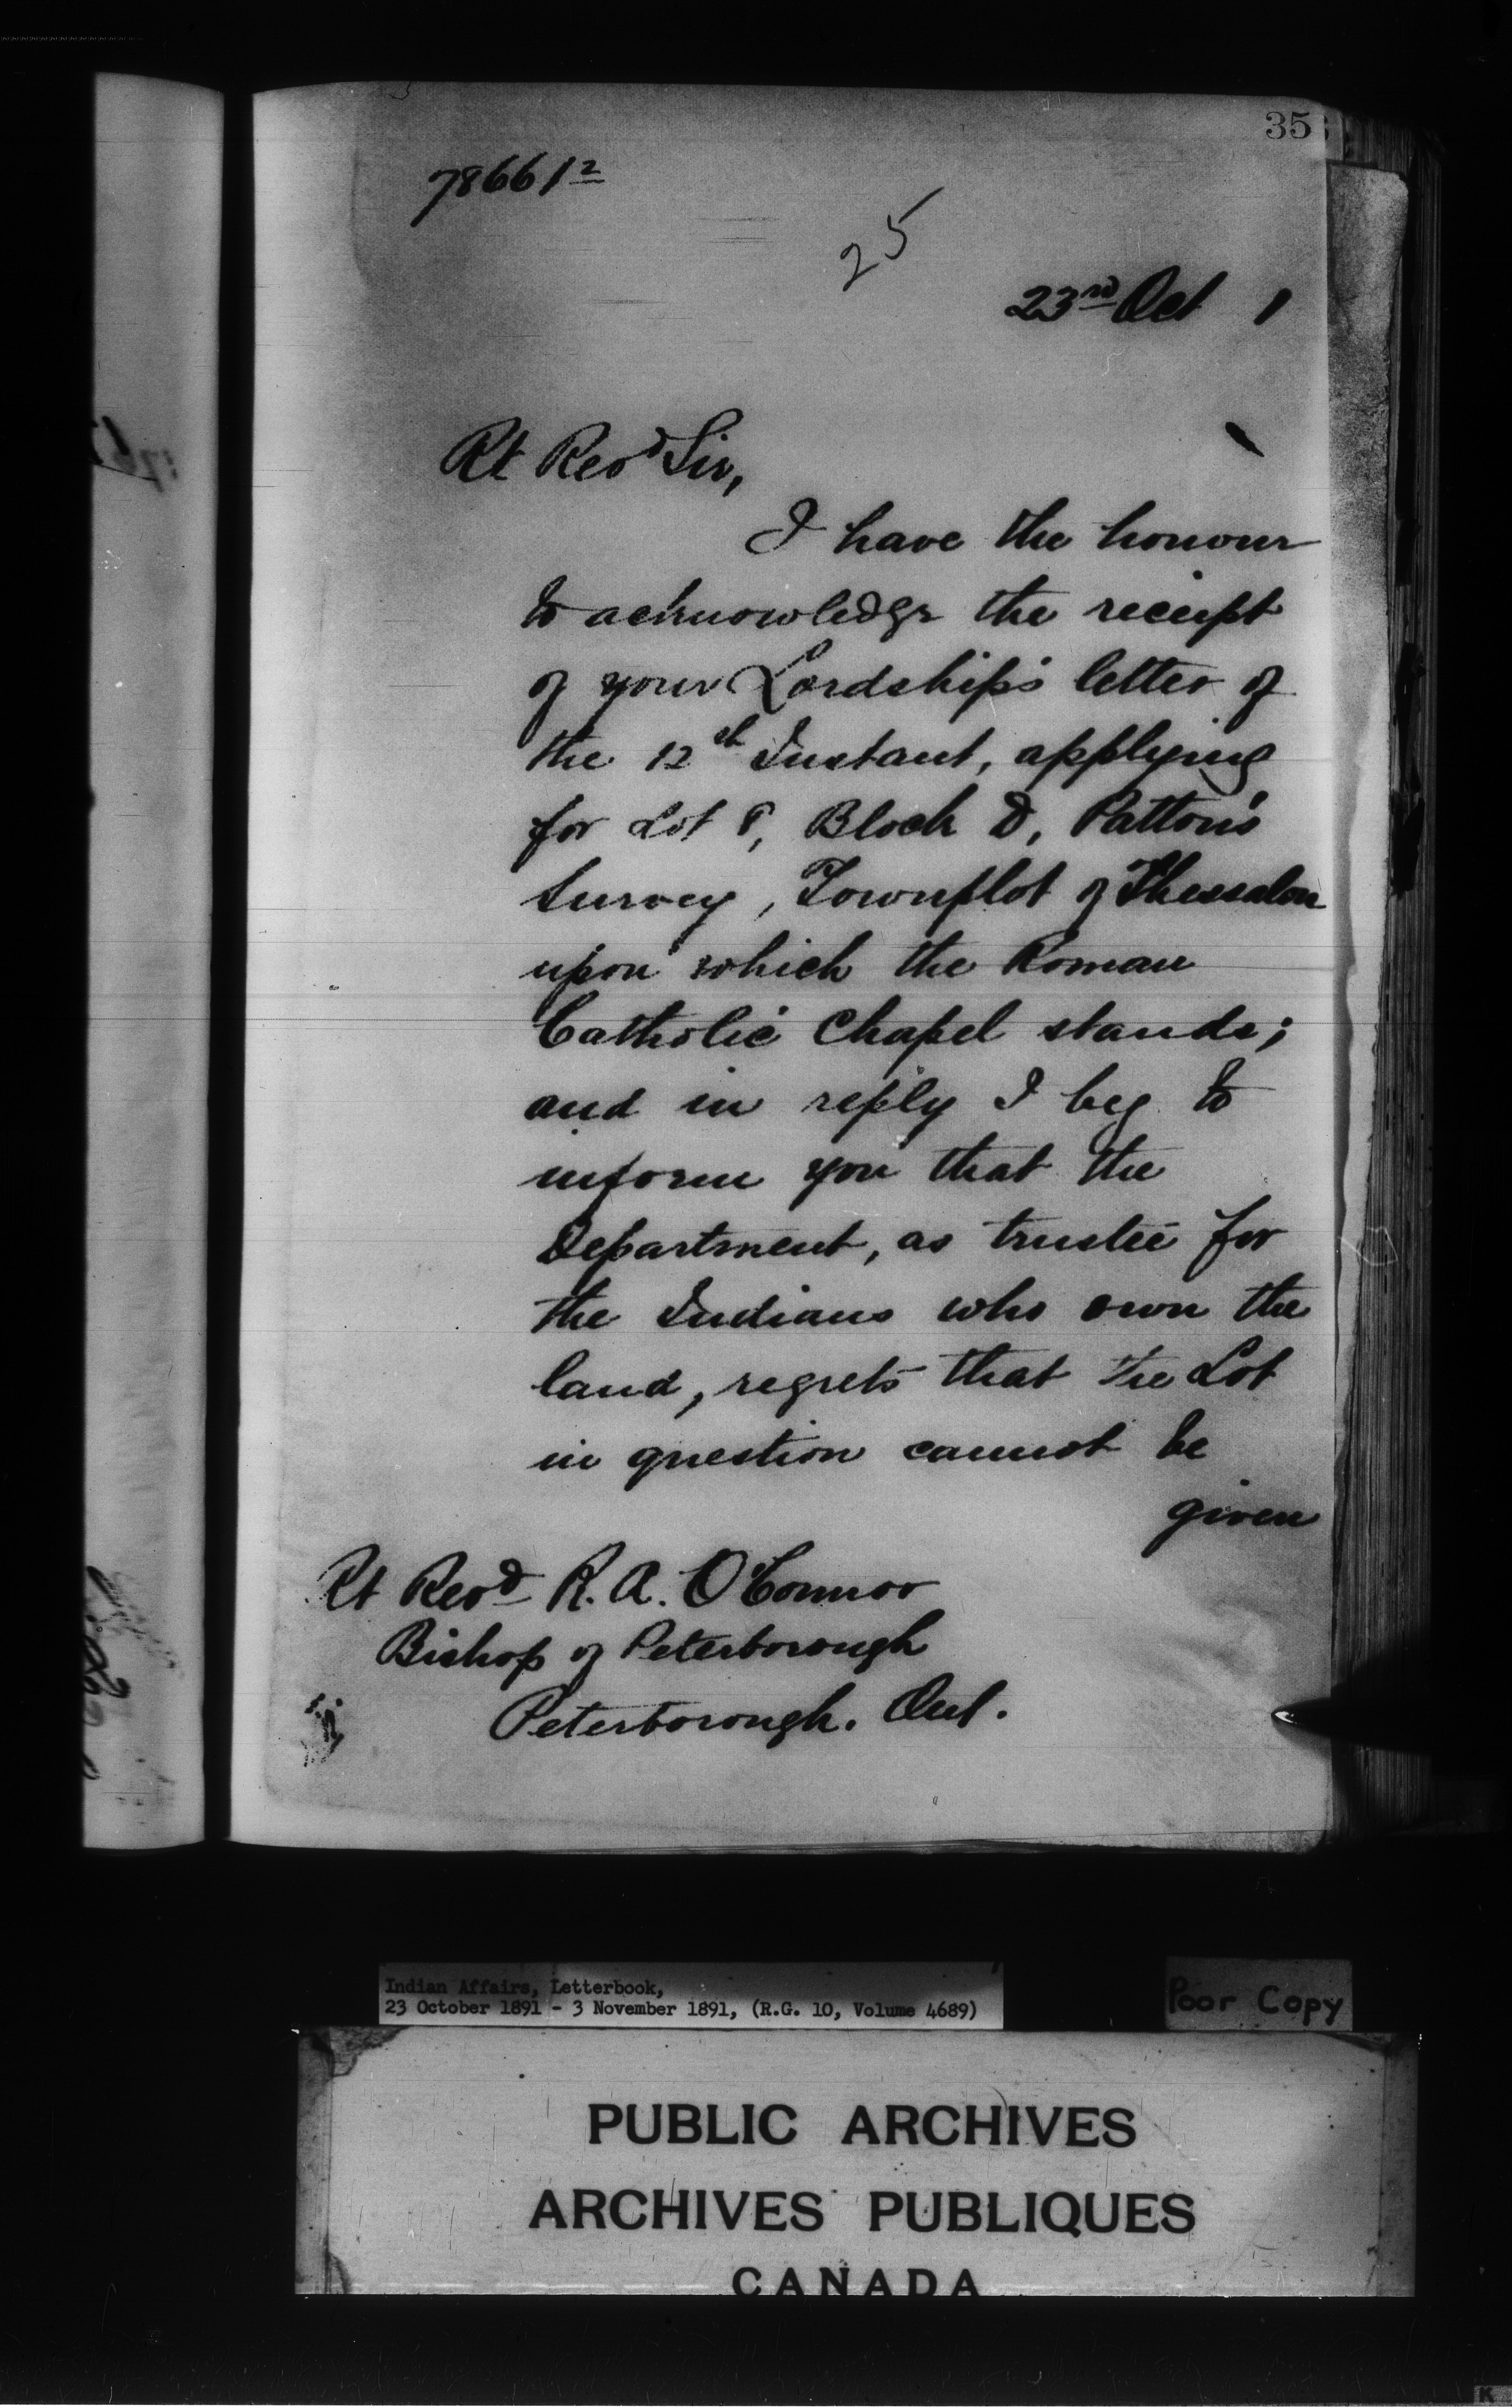 35
78661²
25
23rd Oct 1
Rt Revd Sir,
I have the honour
to acknowledge the receipt
of your Lordship's letter of
the 12th Instant, applying
for Lot 8, Block D, Patton's
Survey, Townplot of Thessalon
upon which the Roman
Catholic Chapel stands;
and in reply I beg to
inform you that the
Department, as trustee for
the Indians who own the
land, regrets that the Lot
in question cannot be
given
Rt Revd R. A. O'Connor
Bishop of Peterborough
Peterborough. Ont.
Indian Affairs, Letterbook,
23 October 1891 - 3 November 1891, (R.G. 10, Volume 4689)
Poor Copy
PUBLIC ARCHIVES
ARCHIVES PUBLIQUES
CANADA